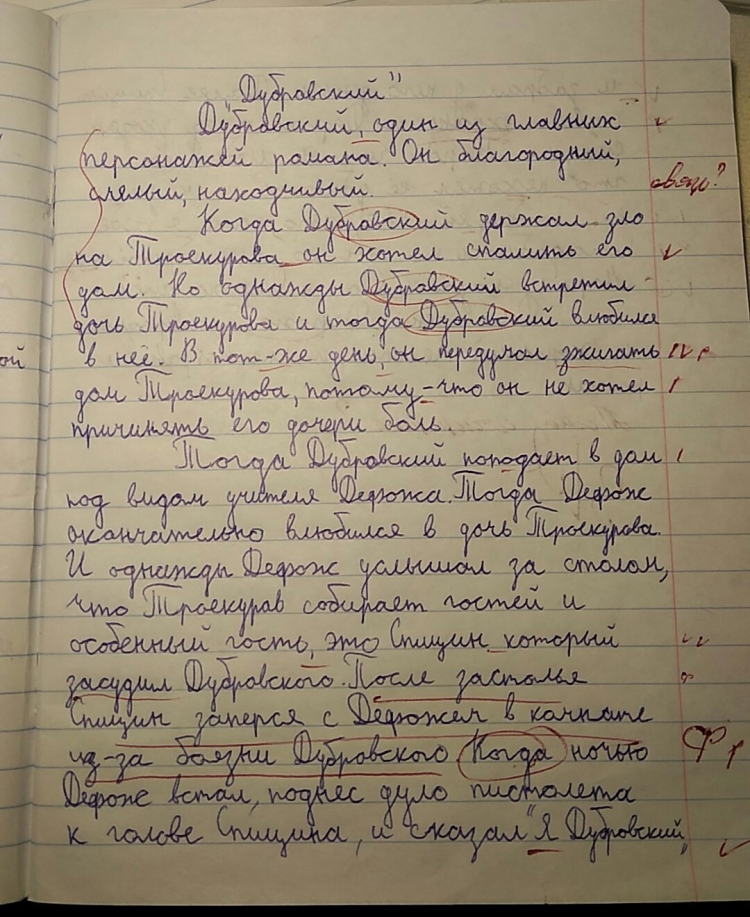 „Дубровский"
Дубровский, один из главных
персонажей романа. Он благородный,
смелый, находчивый.
связь?
Когда Дубровский держал зло
на Троекурова он хотел спалить его
дом. Но однажды Дубровский встретил
дочь Троекурова и тогда Дубровский влюбился
в неё. В тот-же день, он передумал зжигать
дом Троекурова, потому-что он не хотел
причинять его дочери боль.
Тогда Дубровский поподает в дом
под видам учителя Дефожа. Тогда Дефож
окончательно влюбился в дочь Троекурова.
И однажды Дефож услышал за столом,
что Троекурав собирает гостей и
особенный гость, это Спицин который
засудил Дубровского. После застолья
Спицин заперся с Дефожем в комнате
из-за боязни Дубровского Когда ночью
Ф
Дефож встал, поднес дуло пистолета
к голове Спицина, и сказал "Я Дубровский,"
ой